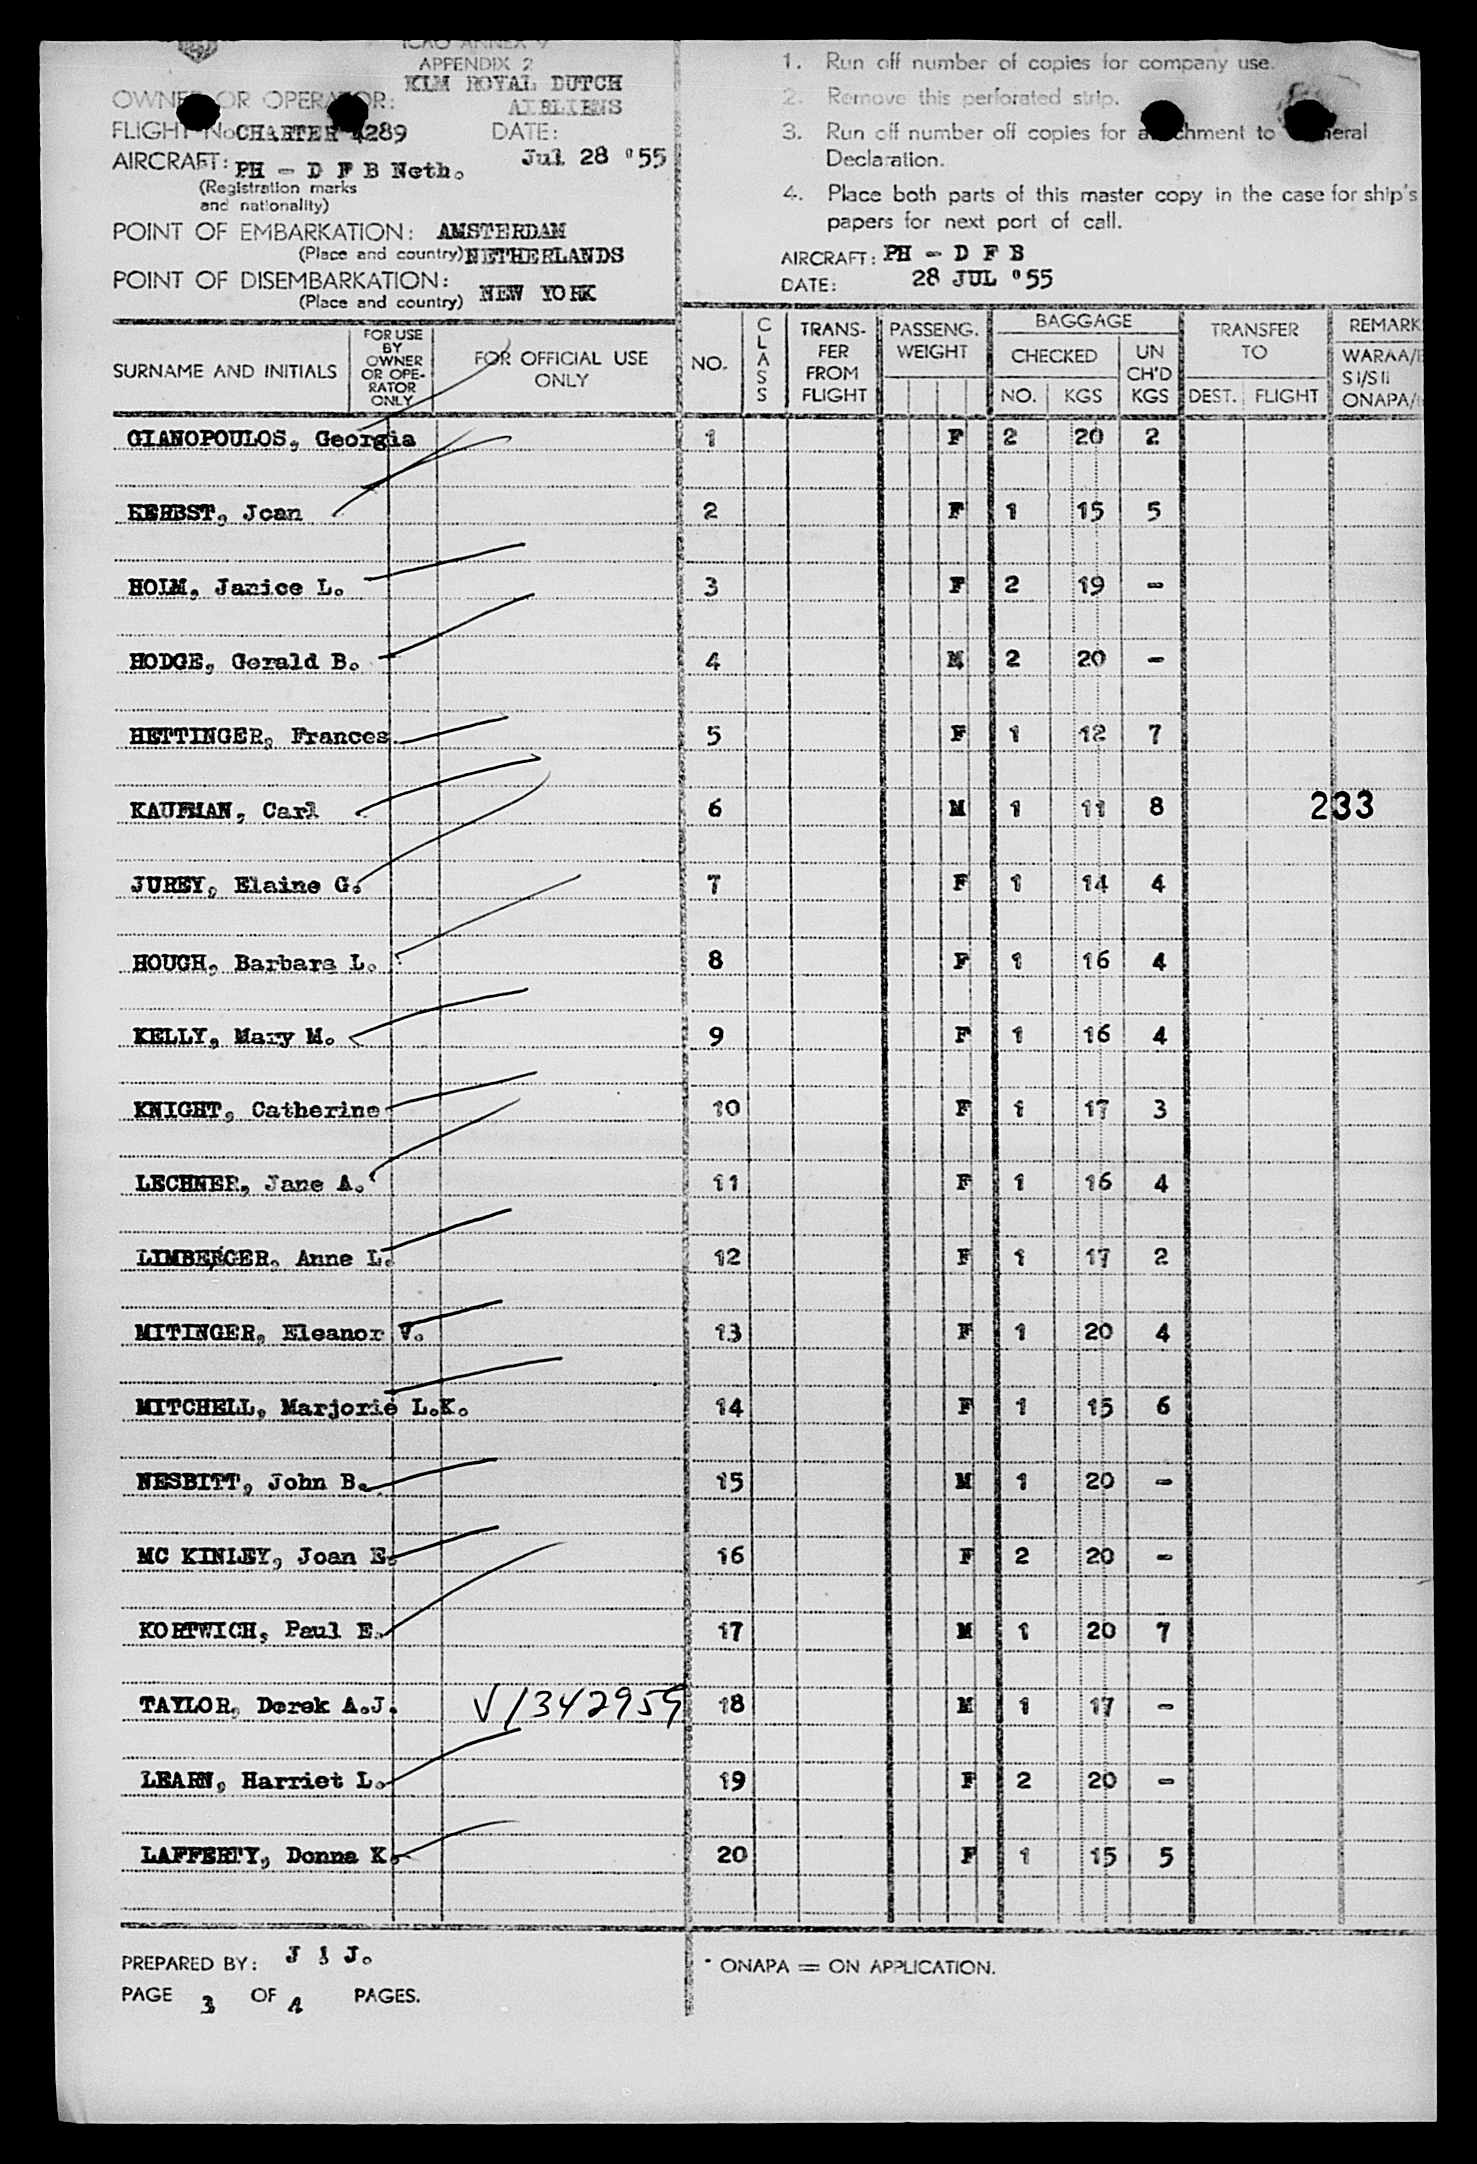 ICAO ANNEX 9
APPENDIX 2
KLM ROYAL DUTCH
OWNER OR OPERATOR: AIRLIENS
FLIGHT No. CHARTER 4289 DATE:
Jul 28 '55
AIRCRAFT: PH - D F B Neth.
(Registration marks
and nationality)
POINT OF EMBARKATION: AMSTERDAM
(Place and country) NETHERLANDS
POINT OF DISEMBARKATION:
(Place and country) NEW YORK
1. Run off number of copies for company use.
2. Remove this perforated strip.
3. Run off number off copies for attachment to General
Declaration.
4. Place both parts of this master copy in the case for ship's
papers for next port of call.
AIRCRAFT: PH - D F B
DATE: 28 JUL '55
SURNAME AND INITIALS
FOR USE
BY
OWNER
OR OPE-
RATOR
ONLY
FOR OFFICIAL USE
ONLY
NO.
CLASS
TRANS-
FER
FROM
FLIGHT
PASSENG.
WEIGHT
BAGGAGE
CHECKED
NO. KGS
UN
CH'D
KGS
TRANSFER
TO
DEST. FLIGHT
REMARK
WARAA/
SI/SII
ONAPA/
GIANOPOULOS, Georgia 1 F 2 20 2
HERBST, Joan 2 F 1 15 5
HOLM, Janice L. 3 F 2 19 -
HODGE, Gerald B. 4 M 2 20 -
HETTINGER, Frances 5 F 1 12 7
KAUFMAN, Carl 6 M 1 11 8 233
JUREY, Elaine G. 7 F 1 14 4
HOUGH, Barbara L. 8 F 1 16 4
KELLY, Mary M. 9 F 1 16 4
KNIGHT, Catherine 10 F 1 17 3
LECHNER, Jane A. 11 F 1 16 4
LIMBERGER, Anne L. 12 F 1 17 2
MITINGER, Eleanor V. 13 F 1 20 4
MITCHELL, Marjorie L.K. 14 F 1 15 6
NESBITT, John B. 15 M 1 20 -
MC KINLEY, Joan E. 16 F 2 20 -
KORTWICH, Paul E. 17 M 1 20 7
TAYLOR, Derek A.J. V1342959 18 M 1 17 -
LEARN, Harriet L. 19 F 2 20 -
LAFFERTY, Donna K. 20 F 1 15 5
PREPARED BY: J ! J.
PAGE 3 OF 4 PAGES.
* ONAPA = ON APPLICATION.